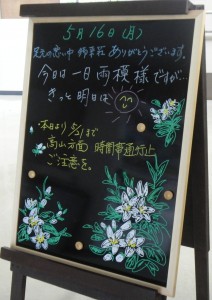 5月16日(月)
足元の悪い中 御来荘 ありがとうございます。
今日は 一日 雨模様ですが…
きっと 明日は
・本日より 5/ まで
高山方面 時間帯通行止
ご注意を。